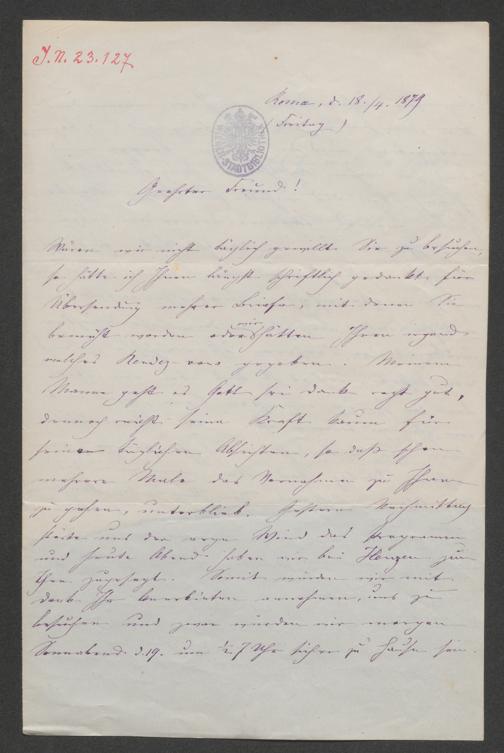 J.N. 23.127
Roma, d. 18./4. 1879
(Freitag)
WIENER STADTBIBLIOTHEK
Geehrter Freund!
Wären wir nicht täglich gewillt Sie zu besuchen,
so hätte ich Ihnen längst schriftlich gedankt für
Übersendung mehrer Briefe, mit denen Sie
bemüht worden oder wir hätten Ihnen irgend
welches Rendez vous gegeben. Meinem
Manne geht es Gott sei dank recht gut,
dennoch reicht seine Kraft kaum für
seine täglichen Absichten, so daß schon
mehrere Male das Vornehmen zu Ihnen
zu gehen, unterblieb. Gestern Nachmittag
störte uns der arge Wind das Programm
und heute Abend haben wir bei zum
Thee zugesagt. Somit würden wir mit
Dank Ihr Anerbieten annehmen, uns zu
besuchen und zwar würden wir morgen
Sonnabend d. 19. um ½ 7 Uhr sicher zu Hause sein.